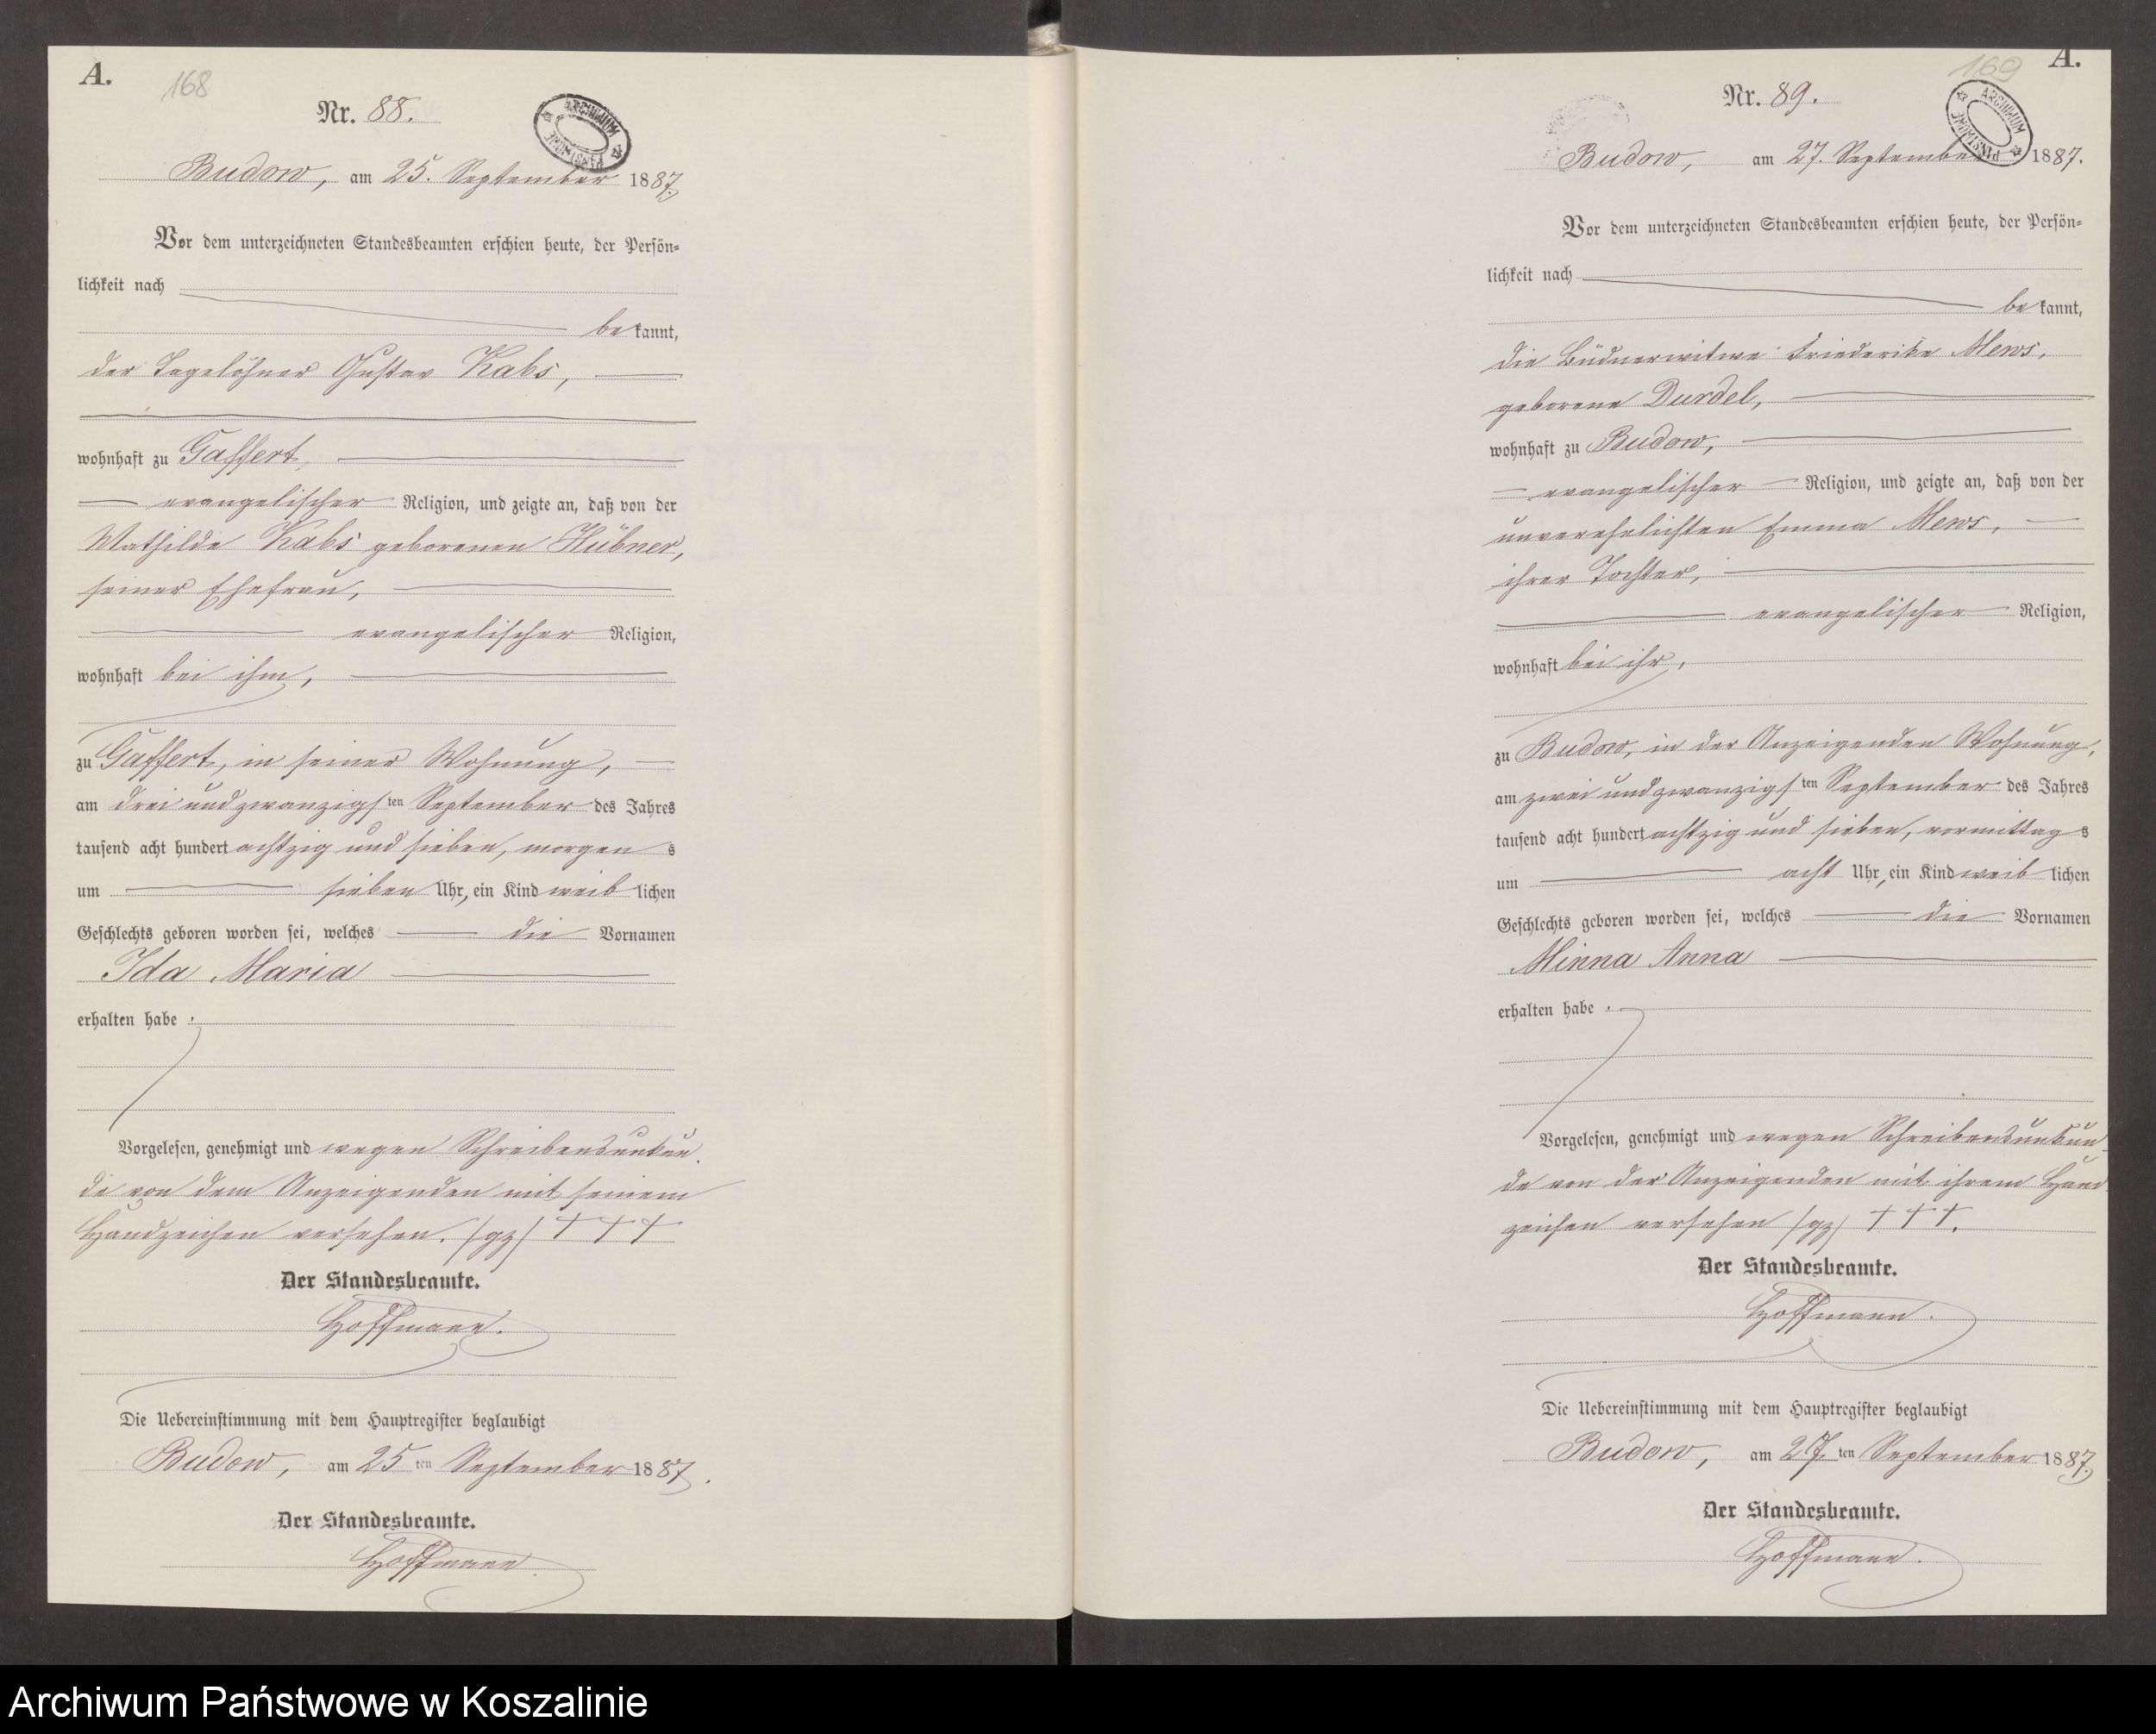 A.
168
Nr. 88.
ARCHIWUM PAŃSTWOWE
Budow, am 25. September 1887.
Vor dem unterzeichneten Standesbeamten erschien heute, der Persön-
lichkeit nach
bekannt,
der Tagelöhner Gustav Kabs,
wohnhaft zu Gaffert,
evangelischer Religion, und zeigte an, daß von der
Mathilde Kabs geborenen Hübner,
seiner Ehefrau,
evangelischer Religion,
wohnhaft bei ihm,
zu Gaffert, in seiner Wohnung,
am drei und zwanzigsten September des Jahres
tausend acht hundert achtzig und sieben, morgens
um sieben Uhr, ein Kind weiblichen
Geschlechts geboren worden sei, welches die Vornamen
Ida Maria
erhalten habe.
Vorgelesen, genehmigt und wegen Schreibensunkun-
de von dem Anzeigenden mit seinem
Handzeichen versehen. (gz) † † †
Der Standesbeamte.
Hoffmann.
Die Uebereinstimmung mit dem Hauptregister beglaubigt
Budow, am 25ten September 1887.
Der Standesbeamte.
Hoffmann.
A.
169
Nr. 89.
ARCHIWUM PAŃSTWOWE
Budow, am 27. September 1887.
Vor dem unterzeichneten Standesbeamten erschien heute, der Persön-
lichkeit nach
bekannt,
die Büdnerwitwe Friederike Mews,
geborene Durdel,
wohnhaft zu Budow,
evangelischer Religion, und zeigte an, daß von der
unverehelichten Emma Mews,
ihrer Tochter,
evangelischer Religion,
wohnhaft bei ihr,
zu Budow, in der Anzeigenden Wohnung,
am zwei und zwanzigsten September des Jahres
tausend acht hundert achtzig und sieben, vormittags
um acht Uhr, ein Kind weiblichen
Geschlechts geboren worden sei, welches die Vornamen
Minna Anna
erhalten habe.
Vorgelesen, genehmigt und wegen Schreibensunkun-
de von der Anzeigenden mit ihrem Hand-
zeichen versehen (gz) † † †.
Der Standesbeamte.
Hoffmann.
Die Uebereinstimmung mit dem Hauptregister beglaubigt
Budow, am 27ten September 1887.
Der Standesbeamte.
Hoffmann.
Archiwum Państwowe w Koszalinie